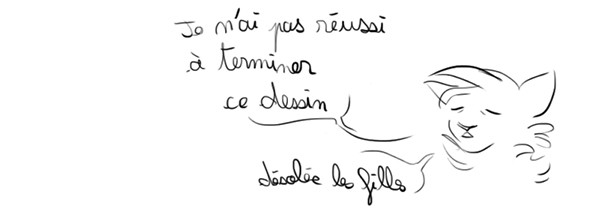 Je n'ai pas réussi
à terminer
ce dessin
désolée les filles